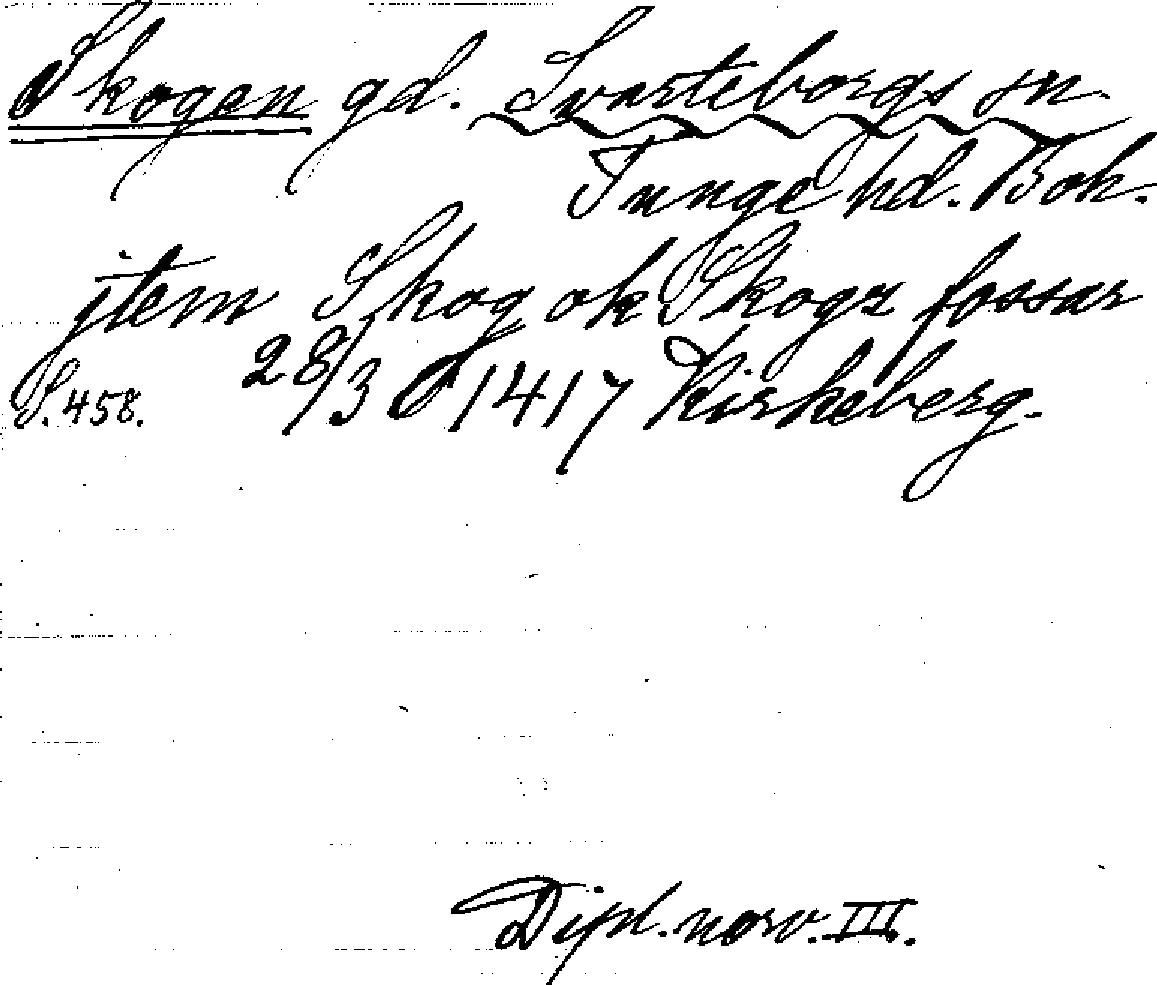 Skogen gd. Svarteborgs sn
Tunge hd. Boh.
jtem Skog ok Skogx fossar
S. 458. 28/3 O 1417 Kirkeberg.
Dipl. norv. III.